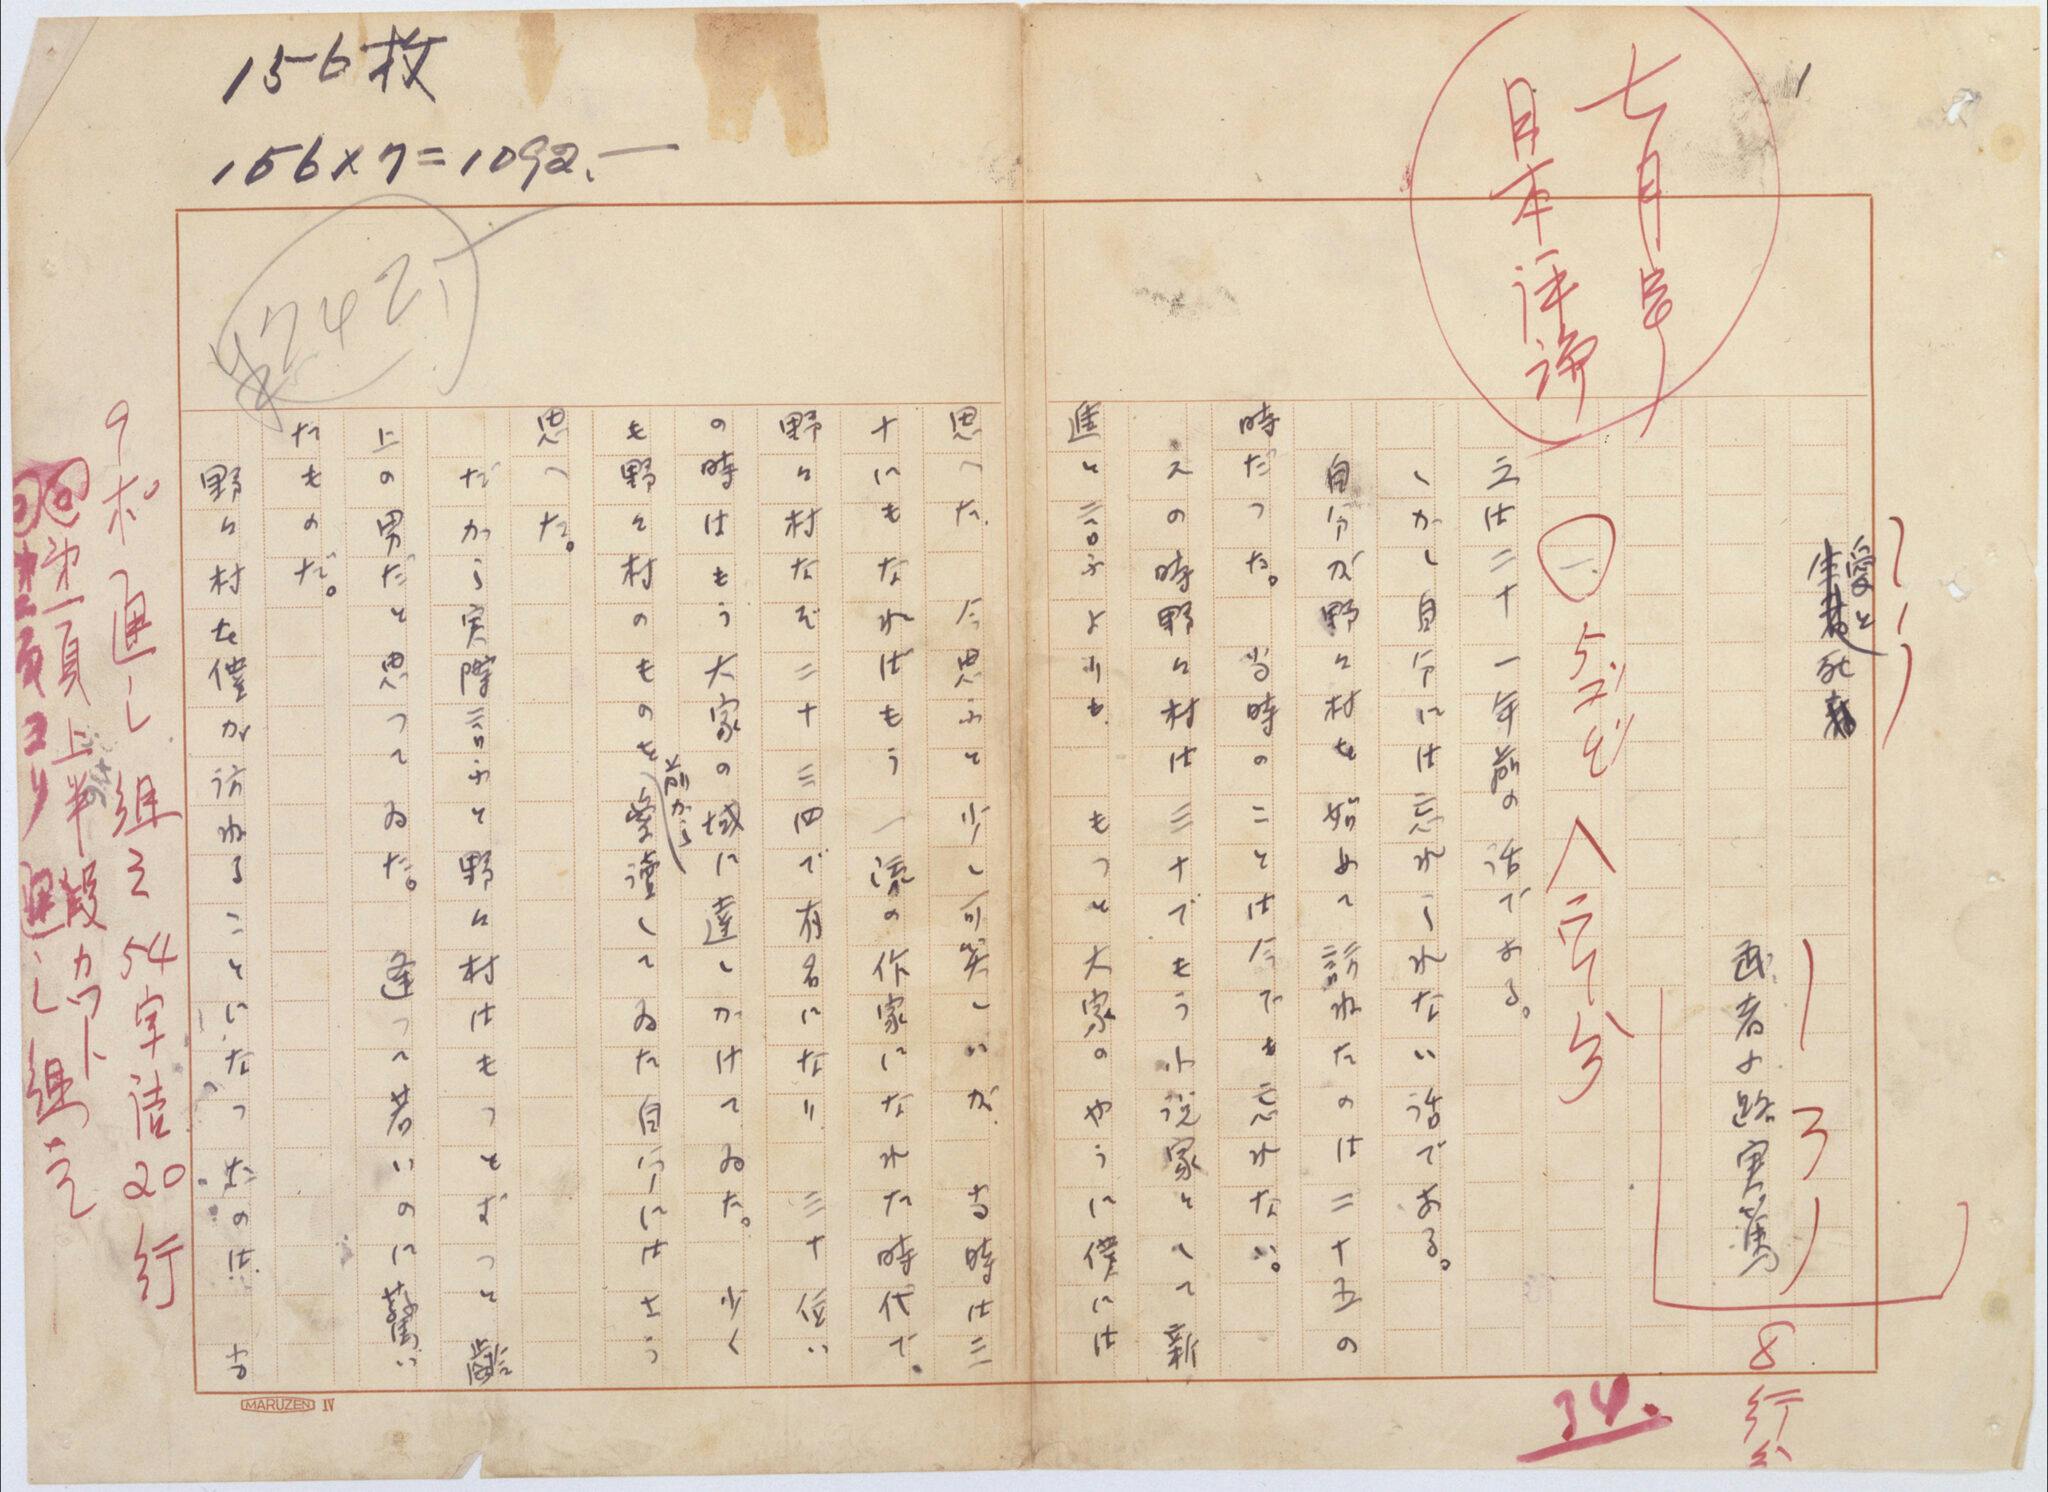 1
七月号
日本評論
156枚
156×7=1092.—
愛と
死
武者小路実篤
8行分
34.
一
5ゴゼ 人字分
之は二十一年前の話である。
しかし自分には忘れられない話である。
自分が野々村を始めて訪ねたのは二十五の
時だった。 当時のことは今でも忘れない。
その時野々村は三十でもう小説家として新
進と言ふより も もっと大家のやうに僕には
思った、 今思ふと少し可笑しいが、 当時は三
十にもなればもう一流の作家になれた時代で、
野々村なぞ二十三四で有名になり 三十位い
の時はもう大家の域に達しかけてゐた。 少く
も野々村のものを前から愛読してゐた自分にはさう
思った。
だから実際言ふと野々村はもっとずっと齢
上の男だと思ってゐた。 逢って若いのに驚い
たものだ。
野々村を僕が訪ねることになったのは 古
9ポ通し組ミ 54字詰20行
第一頁上半段カット
第二頁ヨリ通し組ミ
MARUZEN IV